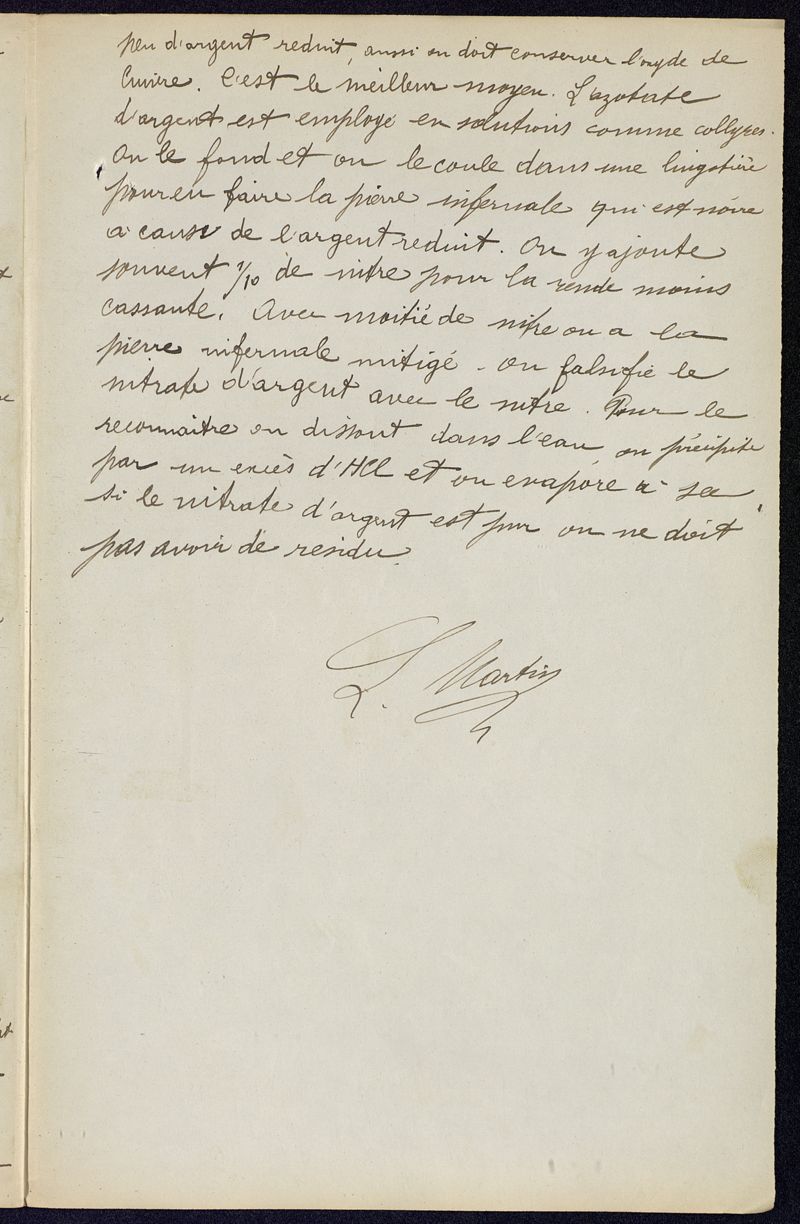 peu d'argent reduit, aussi on doit conserver l'oxyde de
Cuivre. C'est le meilleur moyen. L'azotate
d'argent est employé en solutions comme collyres.
On le fond et on le coule dans une lingotière
pour en faire la pierre infernale qui est noire
a cause de l'argent reduit. On y ajoute
souvent 1/10 de nitre pour la rende moins
cassante. Avec moitié de nitre on a la
pierre infernale mitigé. On falsifie le
nitrate d'argent avec le nitre. Pour le
reconnaitre on dissout dans l'eau on précipite
par un excès d'HCl et on evapore à sec
si le nitrate d'argent est pur on ne doit
pas avoir de residu.
L. Martin